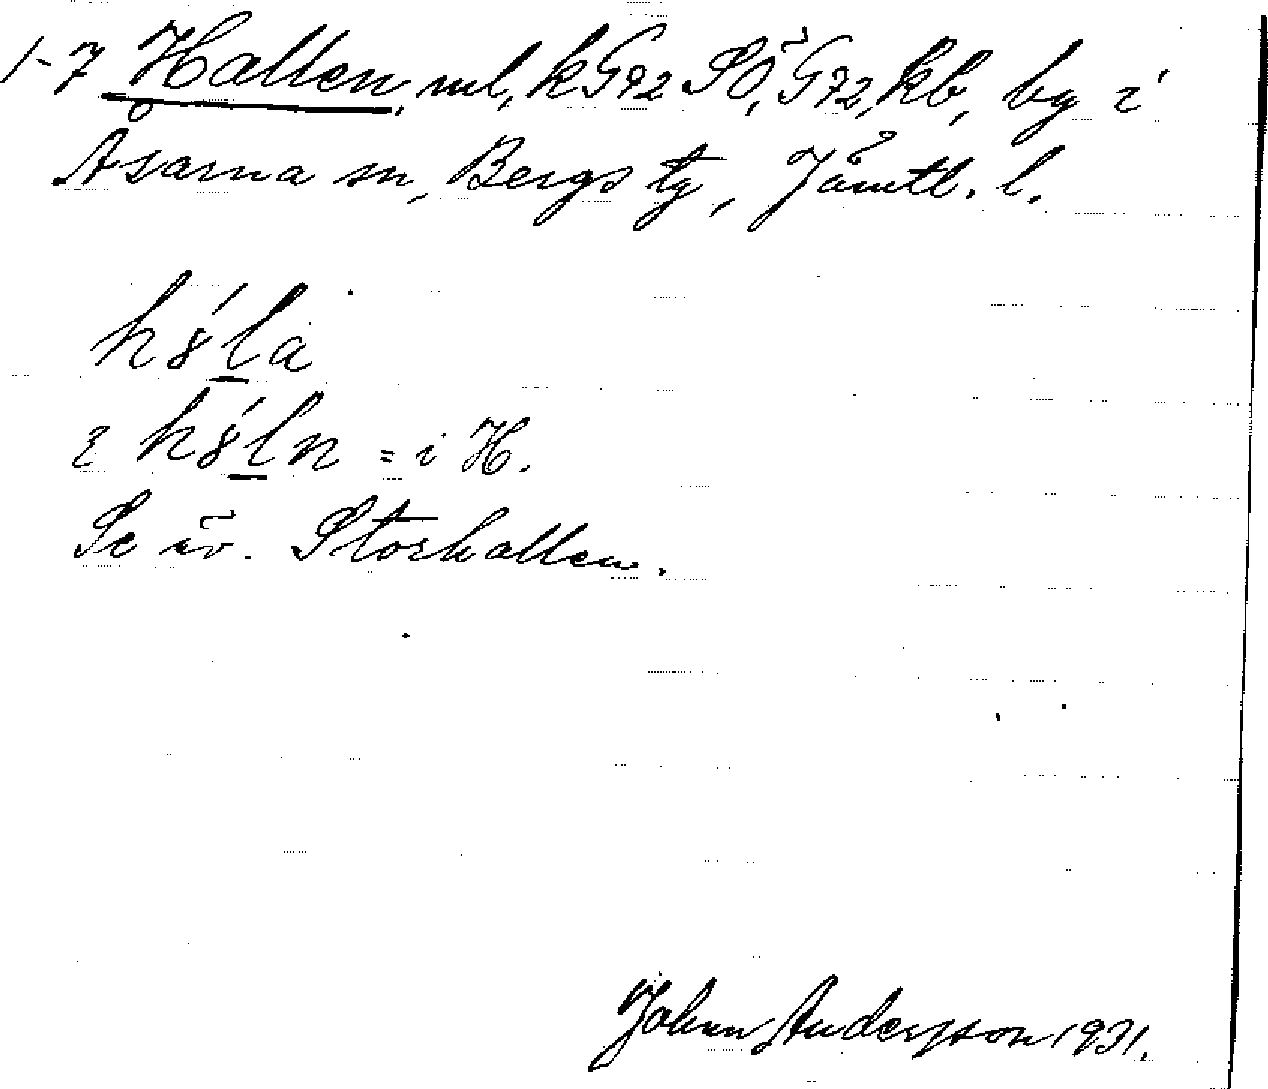 1-7 Hallen, ml, kG72 SÖ, G72, kb, by i
Åsarna sn, Bergs tg, Jämtl. l.
hs̀la
i hs̀ln = i H.
Se äv. Storhallen.
Johan Andersson 1931.